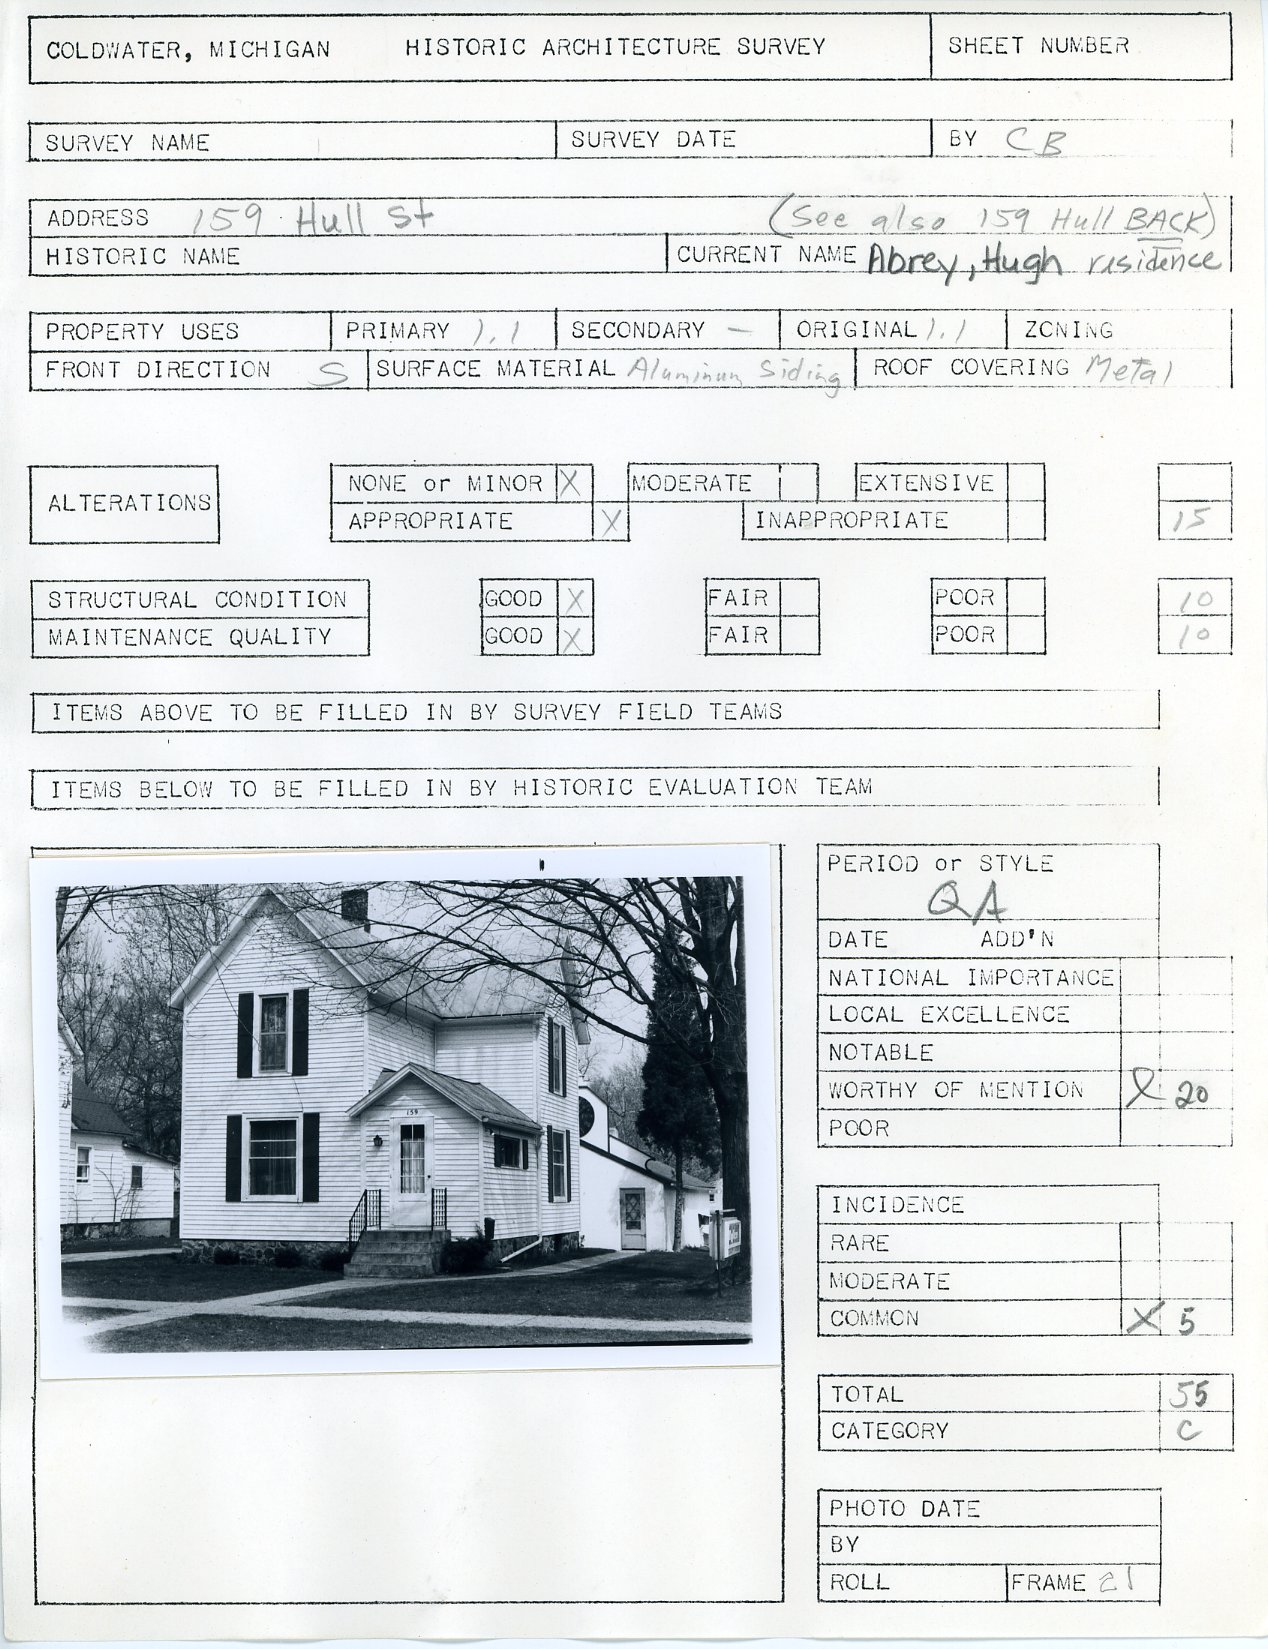 COLDWATER, MICHIGAN HISTORIC ARCHITECTURE SURVEY SHEET NUMBER
SURVEY NAME SURVEY DATE BY CB
ADDRESS 159 Hull St (See also 159 Hull BACK)
HISTORIC NAME CURRENT NAME Abrey, Hugh residence
PROPERTY USES PRIMARY 1.1 SECONDARY - ORIGINAL 1.1 ZONING
FRONT DIRECTION S SURFACE MATERIAL Aluminum Siding ROOF COVERING Metal
ALTERATIONS
NONE or MINOR X MODERATE EXTENSIVE
APPROPRIATE X INAPPROPRIATE 15
STRUCTURAL CONDITION GOOD X FAIR POOR 10
MAINTENANCE QUALITY GOOD X FAIR POOR 10
ITEMS ABOVE TO BE FILLED IN BY SURVEY FIELD TEAMS
ITEMS BELOW TO BE FILLED IN BY HISTORIC EVALUATION TEAM
159
PERIOD or STYLE
QA
DATE ADD'N
NATIONAL IMPORTANCE
LOCAL EXCELLENCE
NOTABLE
WORTHY OF MENTION X 20
POOR
INCIDENCE
RARE
MODERATE
COMMON X 5
TOTAL 55
CATEGORY C
PHOTO DATE
BY
ROLL FRAME 21